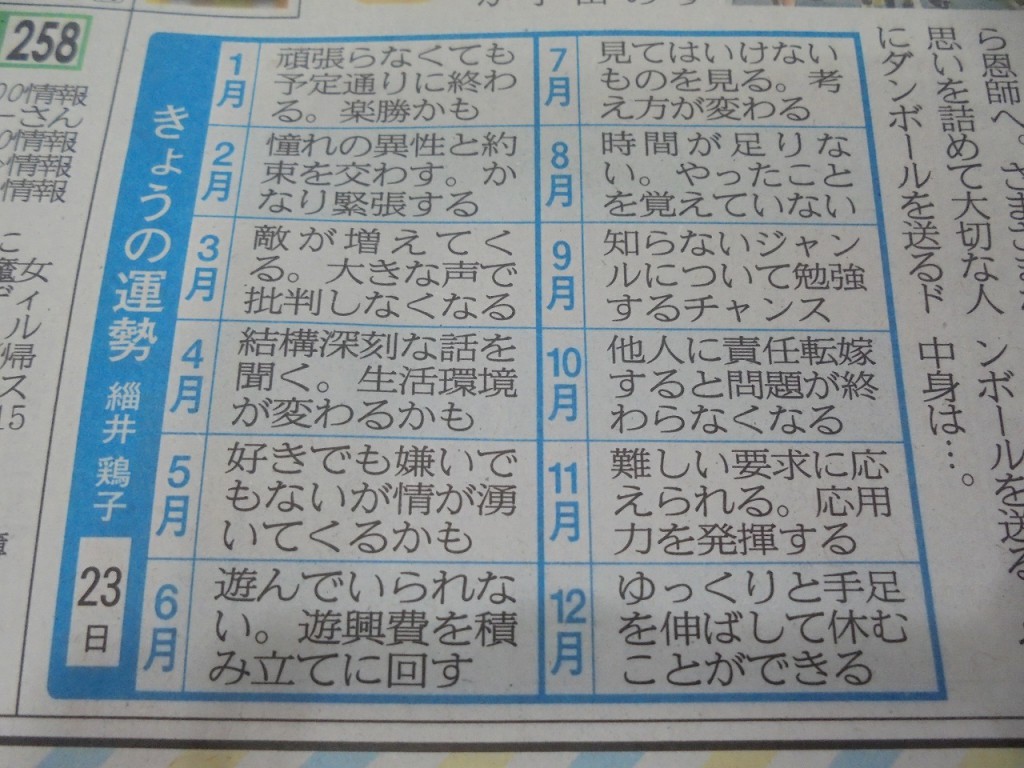 258
情報
ーさん
情報
情報
情報
きょうの運勢
緇井 鶏子
23
日
1月
頑張らなくても
予定通りに終わ
る。楽勝かも
2月
憧れの異性と約
束を交わす。か
なり緊張する
3月
敵が増えてく
る。大きな声で
批判しなくなる
4月
結構深刻な話を
聞く。生活環境
が変わるかも
5月
好きでも嫌いで
もないが情が湧
いてくるかも
6月
遊んでいられな
い。遊興費を積
み立てに回す
7月
見てはいけない
ものを見る。考
え方が変わる
8月
時間が足りな
い。やったこと
を覚えていない
9月
知らないジャン
ルについて勉強
するチャンス
10月
他人に責任転嫁
すると問題が終
わらなくなる
11月
難しい要求に応
えられる。応用
力を発揮する
12月
ゆっくりと手足
を伸ばして休む
ことができる
ら恩師へ。さまざまな
思いを詰めて大切な人
にダンボールを送るド
ンボールを送る
中身は…。